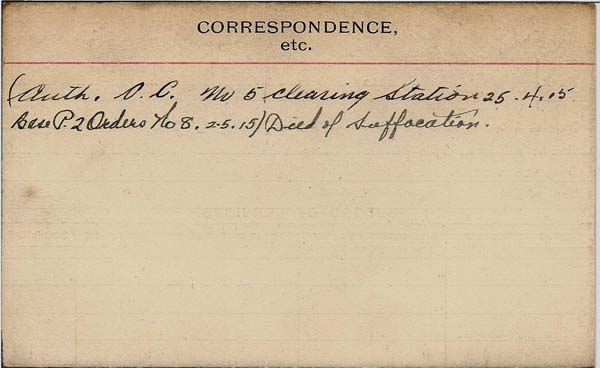 CORRESPONDENCE,
etc.
(Auth. O.C. No 5 clearing Station 25.4.15
Base P. 2 Orders No 8. 2.5.15) Died of Suffocation.